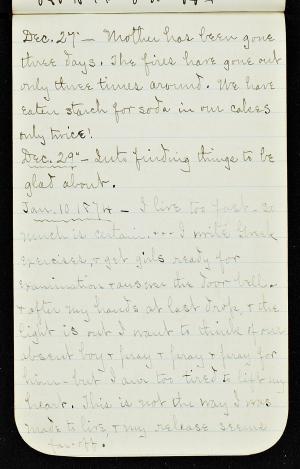 Dec. 27" – Mother has been gone
three days. The fires have gone out
only three times around. We have
eaten starch for soda in our cakes
only twice!
Dec. 29" – Into finding things to be
glad about.
Jan. 10. 1874 – I live too fast – so
much is certain. ... I write Greek
exercises, & get girls ready for
examination & answer the door bell –
& after my hands at last drop, & the
light is out I want to think of our
absent boy & pray & pray & pray for
him – but I am too tired to lift my
heart. This is not the way I was
made to live & my release seems
far-off!